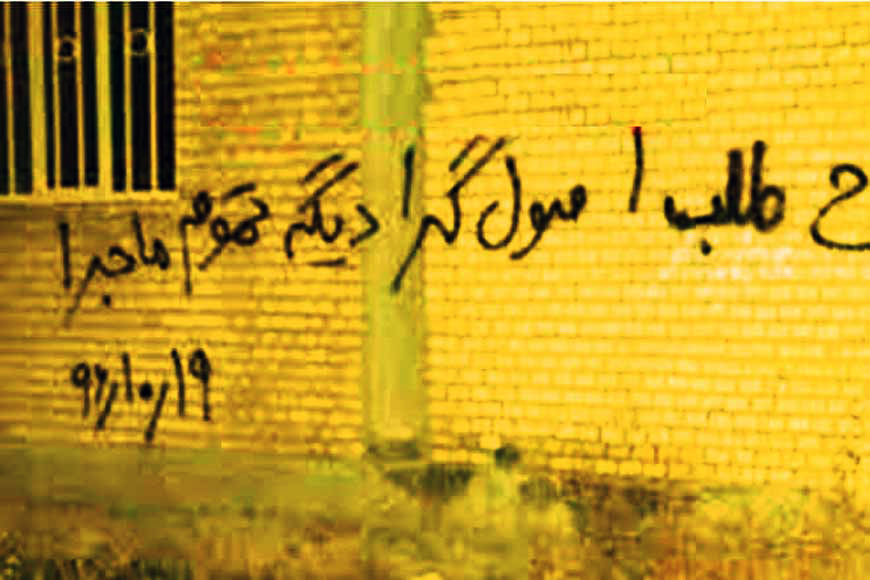 ح طلب اصول گرا دیگه تموم ماجرا
۹۶٫۱۰٫۱۹